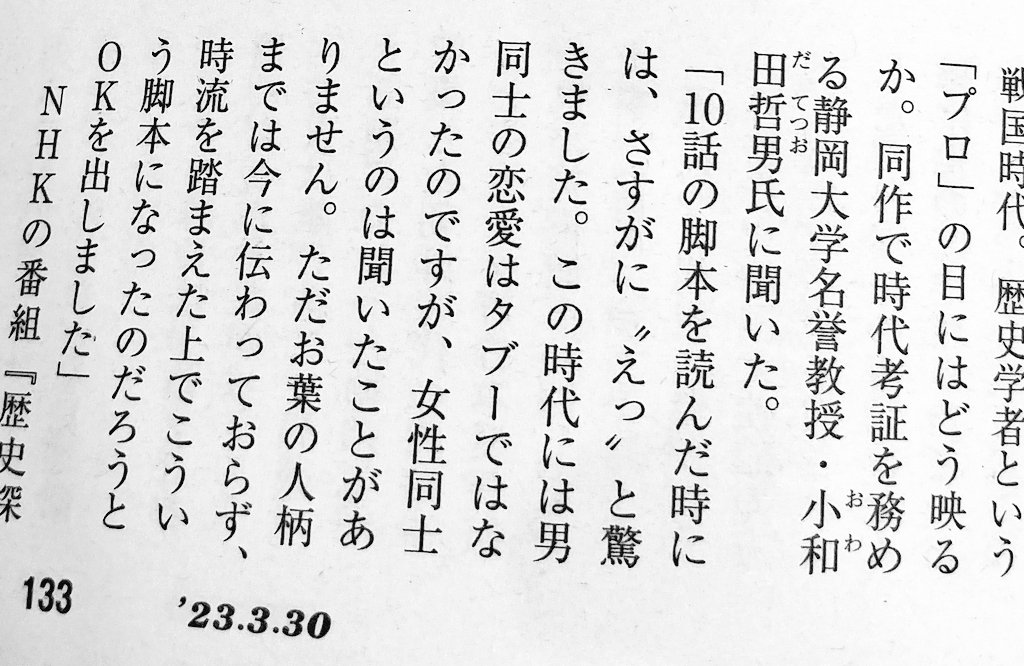 戦国時代。歴史学者という
「プロ」の目にはどう映る
か。同作で時代考証を務め
る静岡大学名誉教授・小和
おわ
田哲男氏に聞いた。
だてつお
「10話の脚本を読んだ時に
は、さすがに〝えっ〟と驚
きました。この時代には男
同士の恋愛はタブーではな
かったのですが、女性同士
というのは聞いたことがあ
りません。ただお葉の人柄
までは今に伝わっておらず、
時流を踏まえた上でこうい
う脚本になったのだろうと
OKを出しました」
NHKの番組『歴史深
133
'23.3.30